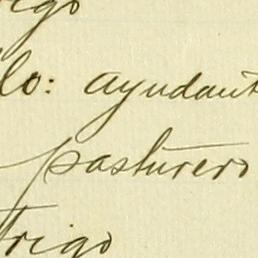 lo: ayudant
pasturero
Trigo